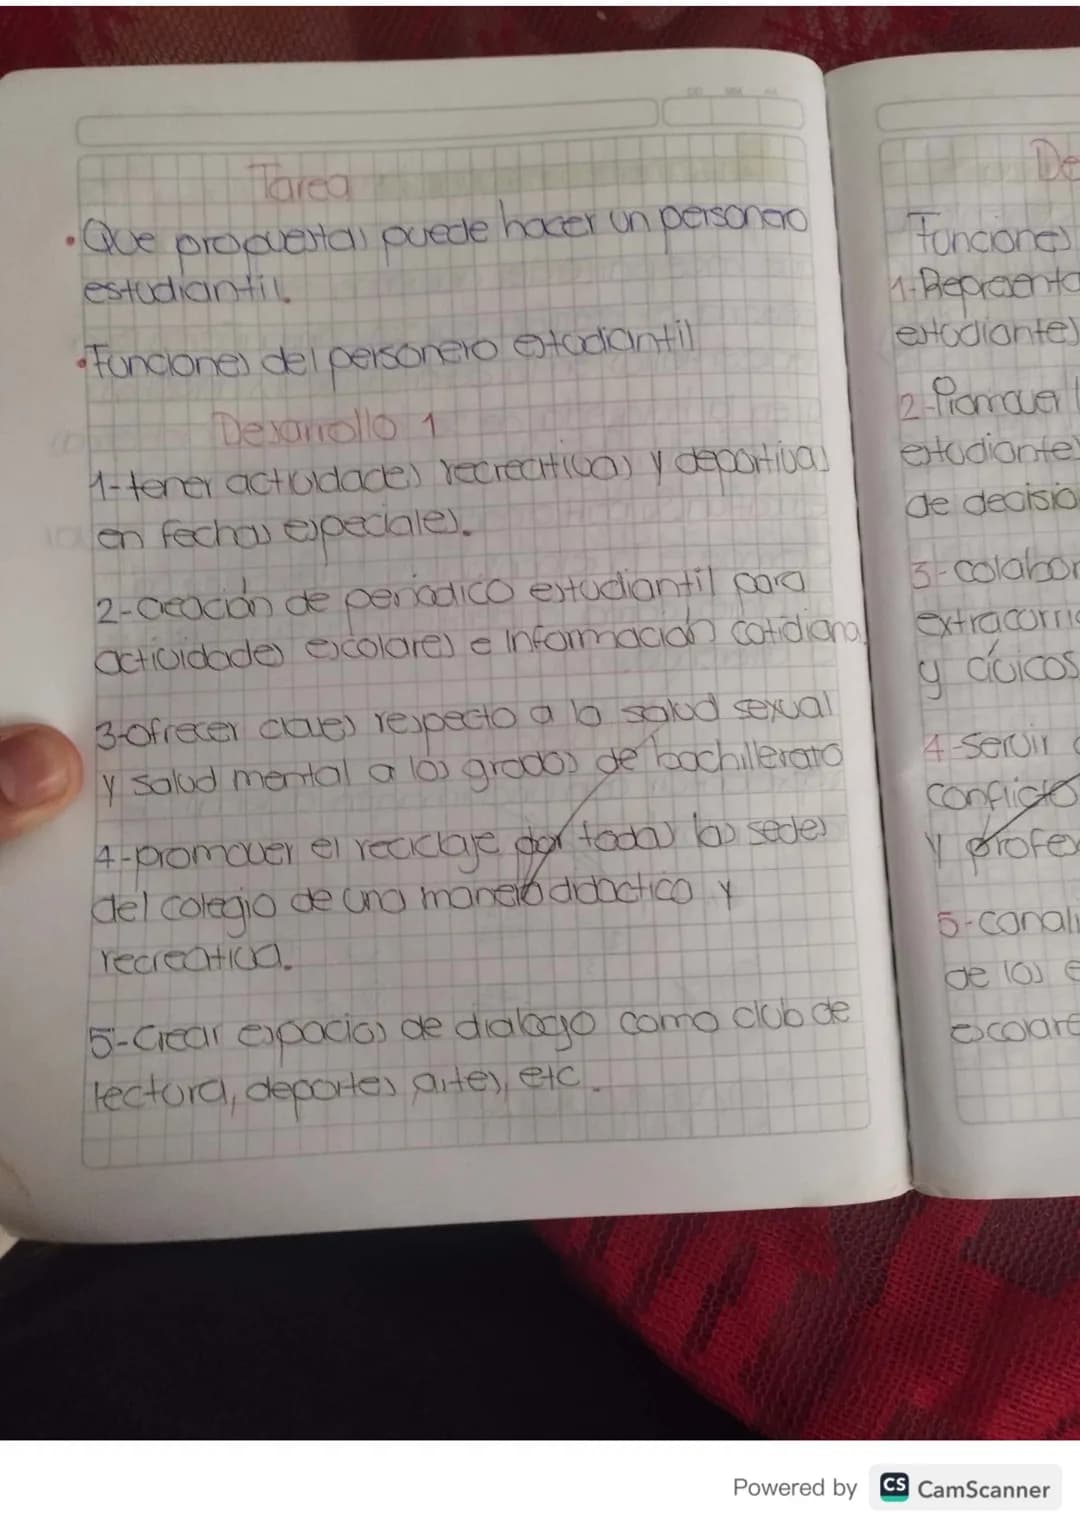 Tarea
• Que propuestas puede hacer un personero
estudiantil
• Funciones del personero estudiantil
Desarrollo 1
1-tener actividades recreativas y deportivas
en fechas especiales.
2-creación de periodico estudiantil para
actividades escolares e información cotidiana
3-ofrecer claves respecto a la salud sexual
y salud mental a los grados de bachillerato
4-promover el reciclaje por todas las sedes
del colegio de una manera didactico y
recreativa.
5-Crear espacios de dialogo como club de
lectura, deportes artes, etc.
De
Funciones
1-Representa
estudiantes
2-Promover l
estudiantes
de decisio
3-colabor
extracurric
y cívicos
4-Servir
conflicto
y profes
5-canali
de los e
escolare
Powered by CS CamScanner